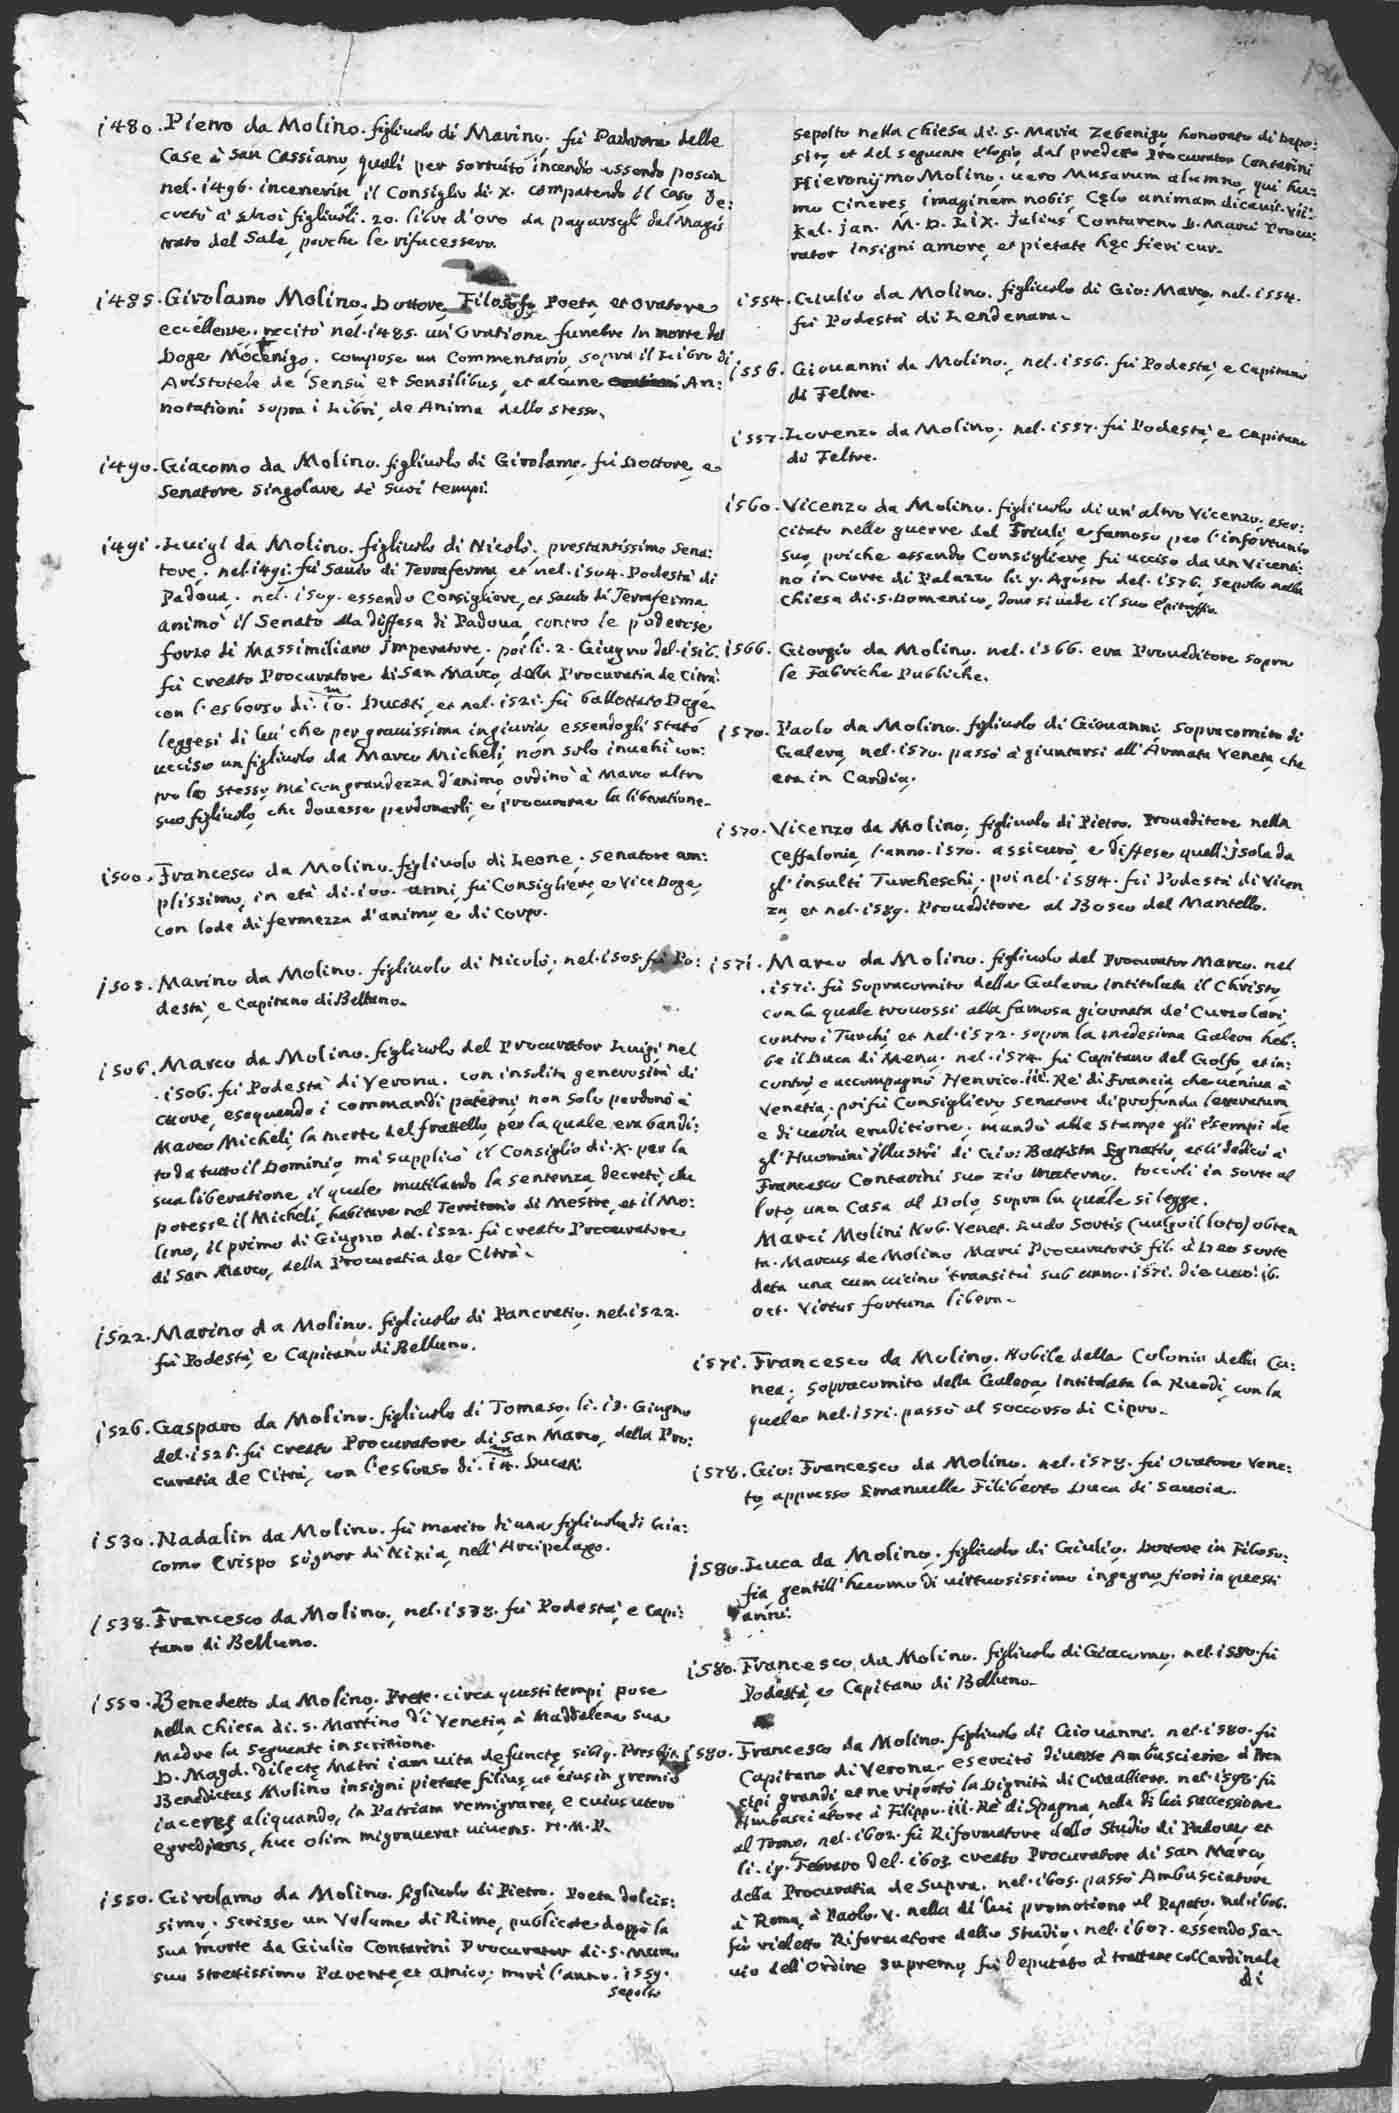 1480. Pietro da Molino. figliuolo di Marino, fù Padrone delle
Case à San Cassiano, quali per fortuito incendio essendo poscia
nel. 1496. incenerite, il Consiglio di X. compatendo il caso, de:
cretò à suoi figliuoli. 20. libre d'oro da pagarsegli dal Magis
trato del Sale, perche le rifacessero.
1485. Girolamo Molino, Dottore, Filosofo, Poeta, et Oratore
eccellente, recitò nel. 1485. un'Oratione funebre in morte del
Doge Mocenigo. compose un Commentario, sopra il Libro di
Aristotele de Sensu et Sensilibus, et alcune An:
notationi sopra i Libri, de Anima dello stesso.
1490. Giacomo da Molino. figliuolo di Girolamo. fù Dottore, e
Senatore singolare de suoi tempi.
1491. Luigi da Molino. figliuolo di Nicolò, prestantissimo Sena:
tore, nel. 1491. fù Savio di Terraferma, et nel. 1504. Podestà di
Padoua. nel. 1509. essendo Consigliere, et Savio di Terraferma
animò il Senato alla diffesa di Padova, contro le poderose
forze di Massimiliano Imperatore. poi li. 2. Giugno del. 1516.
fù creato Procuratore di San Marco, della Procuratia de Citrà
con l'esborso di. 10. m Ducati, et nel. 1521. fù ballottato Doge.
leggesi di lui che per gravissima ingiuria essendogli stato
ucciso un figliuolo da Marco Micheli, non solo inuehì con:
tro lo stesso, mà con grandezza d'animo ordinò à Marco altro
suo figliuolo, che douesse perdonarli, e procurarne la liberatione.
1500. Francesco da Molino. figliuolo di Leone. Senatore am:
plissimo, in età di. 100. anni, fù Consigliere, e Vice Doge,
con lode di fermezza d'animo, e di corpo.
1505. Marino da Molino. figliuolo di Nicolò, nel. 1505. fù Po:
destà, e Capitano di Belluno.
1506. Marco da Molino. figliuolo del Procurator Luigi nel
. 1506. fù Podestà di Verona. con insolita generosità di
cuore, esequendo i commandi paterni, non solo perdonò à
Marco Micheli, la morte del frattello, per la quale, era bandi:
to da tutto il Dominio, mà supplicò il Consiglio di. X. per la
sua liberatione, il quale mutilando la sentenza, decretò, che
potesse il Micheli, habitare nel Territorio di Mestre, et il Mo:
lino, il primo di Giugno del. 1522. fù creato Procuratore
di San Marco, della Procuratia de Citrà.
1522. Marino da Molino. figliuolo di Pancratio. nel. 1522.
fù Podestà, e Capitano di Belluno.
1526. Gasparo da Molino. figliuolo di Tomaso. li. 13. Giugno
del. 1526. fù creato Procuratore di San Marco, della Pro:
curatia de Citrà, con l'esborso di. 14. m Ducati.
1530. Nadalin da Molino. fù marito di una figliuola di Gia:
como Crispo signor di Nixia, nell'Arcipelago.
1538. Francesco da Molino, nel. 1538. fù Podestà, e Capi:
tano di Belluno.
1550. Benedetto da Molino. Prete. circa questi tempi pose
nella Chiesa di. S. Martino di Venetia, à Maddalena sua
Madre la seguente inscrittione.
D. Magd. dilectę Matri iam vita defunctę sibiq. Presbjr.
Benedictus Molino insigni pietate filius, ut eius in gremio
iaceret aliquando, in Patriam remigraret, e cuius utero
egrediens, huc olim migraverat vivens. H. M. P.
1550. Girolamo da Molino. figliuolo di Pietro, Poeta dolcis:
simo, scrisse un Volume di Rime, publicate doppò la
sua morte da Giulio Contarini Procurator di. S. Marco
suo strettissimo Parente, et amico; morì l'anno. 1559.
sepolto
sepolto nella Chiesa di. S. Maria Zebenigo, honorato di Depo:
sito, et del seguente elogio, dal predetto Procurator Contarini
Hieronijmo Molino, uero Musarum alumno, qui hu:
mo Cineres, imaginem nobis, Cęlo animam dicauit. VII.
Kal. Jan. M. D. LIX. Julius Contareno D. Marci Procu:
rator insigni amore, et pietate hęc fieri cur.
1554. Giulio da Molino. figliuolo di Gio: Marco, nel. 1554.
fù Podestà di Lendenara.
1556. Giouanni da Molino, nel. 1556. fù Podestà, e Capitano
di Feltre.
1557. Lorenzo da Molino, nel. 1557. fù Podestà, e Capitano
di Feltre.
1560. Vicenzo da Molino. figliuolo di un'altro Vicenzo, eser:
citato nelle guerre del Friuli, e famoso per l'infortunio
suo, poiche essendo Consigliere, fù ucciso da un Vicenti:
no in Corte di Palazzo li. 9. Agosto del. 1576. sepolto nella
Chiesa di. S. Domenico, doue si uede il suo Epitaffio.
1566. Giorgio da Molino, nel. 1566. era Proueditore sopra
le Fabriche Publiche.
1570. Paolo da Molino. figliuolo di Giouanni, Sopracomito di
Galera, nel. 1570. passò à giuntarsi all'Armata Veneta, che
era in Candia.
1570. Vicenzo da Molino, figliuolo di Pietro. Proueditore nella
Ceffalonia, l'anno. 1570. assicurò, e diffese quell'isola da
gl'insulti Turcheschi, poi nel. 1584. fù Podestà di Vicen
za, et nel. 1589. Proueditore al Bosco del Mantello.
1571. Marco da Molino. figliuolo del Procurator Marco. nel
. 1571. fù Sopracomito della Galera intitulata il Christo,
con la quale trouossi alla famosa giornata de' Curzolari,
contro i Turchi, et nel. 1572. sopra la medesima Galera heb:
be il Duca di Mena. nel. 1574. fù Capitano del Golfo, et in:
contrò, e accompagnò Henrico. III. Rè di Francia, che ueniua à
Venetia, poi fù Consigliero Senatore di profonda letteratura
e di uaria eruditione, mandò alle stampe gli Esempi de
gl'Huomini Illustri di Gio: Battista Egnatio, et li dedicò à
Francesco Contarini suo zio materno. toccoli in sorte al
loto, una Casa al Dolo, sopra la quale si legge.
Marci Molini Nob. Venet. Ludo Sortis (uulgo il loto) obten
ta. Marcus de Molino Marci Procuratoris fil. à Deo sorte
data una cum uicino transitu sub anno. 1571. die uero. 16.
oct. Virtus fortuna libera.
1571. Francesco da Molino. Nobile della Colonia della Ca:
nea, sopracomito della Galera, intitolata la Ruodi, con la
quale nel. 1571. passò al soccorso di Cipro.
1578. Gio: Francesco da Molino. nel. 1578. fù Oratore Vene:
to, appresso Emanuelle Filiberto Duca di Sauoia.
1580. Luca da Molino. figliuolo di Giulio. Dottore in Filoso:
fia, gentill'huomo di uirtuosissimo ingegno, fiorì in questi
anni.
1580. Francesco da Molino. figliuolo di Giacomo, nel. 1580. fù
Podestà, e Capitano di Belluno.
1580. Francesco da Molino. figliuolo di Giouanni. nel. 1580. fù
Capitano di Verona. esercitò diuerse Ambascierie à Pren
cipi grandi, et ne riportò la Dignità di Cavalliere. nel. 1598. fù
Ambasciatore à Filippo. III. Rè di Spagna, nella di lui successione
al Trono. nel. 1602. fù Riformatore dello Studio di Padoua, et
li. 19. Febraro del. 1603. creato Procuratore di San Marco
della Procuratia de Supra. nel. 1605. passò Ambasciatore
à Roma, à Paolo. V. nella di lui promotione al Papato. nel. 1606.
fù rieletto Riformatore dello Studio, nel. 1607. essendo Sa-
uio dell'Ordine supremo, fù deputato à trattare col Cardinale
di